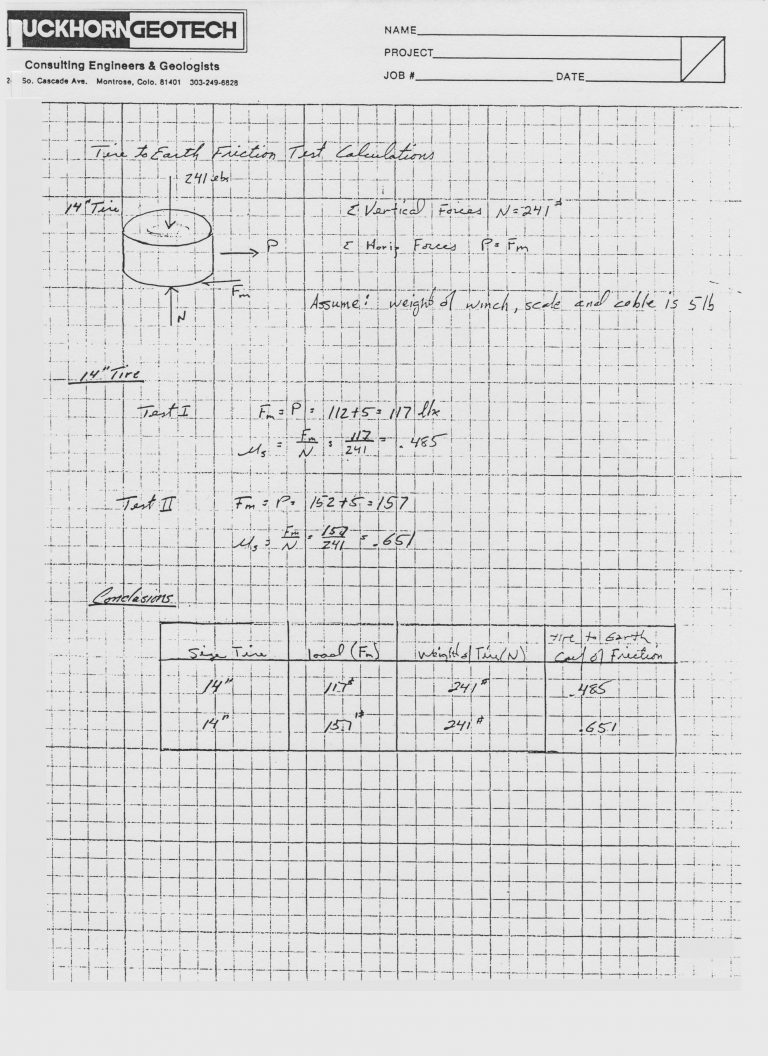 BUCKHORNGEOTECH
Consulting Engineers & Geologists
So. Cascade Ave. Montrose, Colo. 81401 303-249-6828
NAME
PROJECT
JOB # DATE
Tire to Earth Friction Test Calculations
241 lbs
14" Tire
P
Fm
N
Σ Vertical Forces N = 241#
Σ Horiz Forces P = Fm
Assume: weight of winch, scale and cable is 5 lb
14" Tire
Test I Fm = P = 112+5 = 117 lbs
μs = Fm/N = 117/241 = .485
Test II Fm = P = 152+5 = 157
μs = Fm/N = 157/241 = .651
Conclusions
Size Tire Load (Fm) Weight of Tire (N) Tire to Earth Coef of Friction
14" 117# 241# .485
14" 157# 241# .651